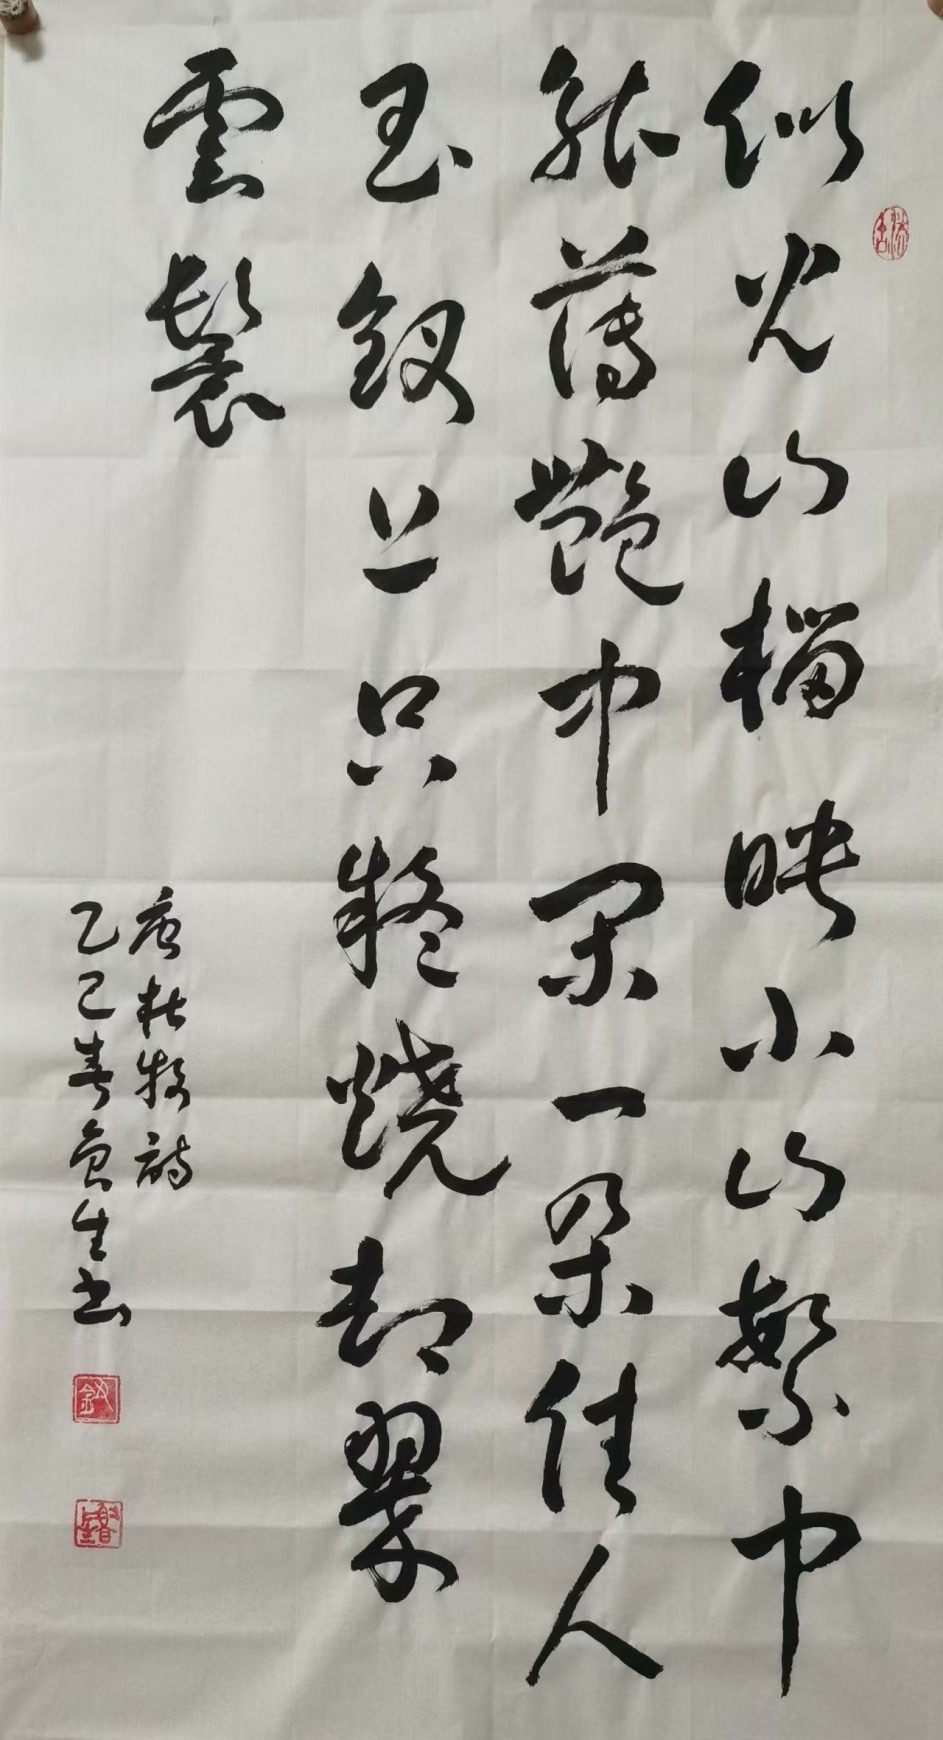 似火山榴映小山繁中
能薄艷中閑一朵佳人
玉釵上只疑燒却翠
雲鬟
唐杜牧詩
乙巳春生书